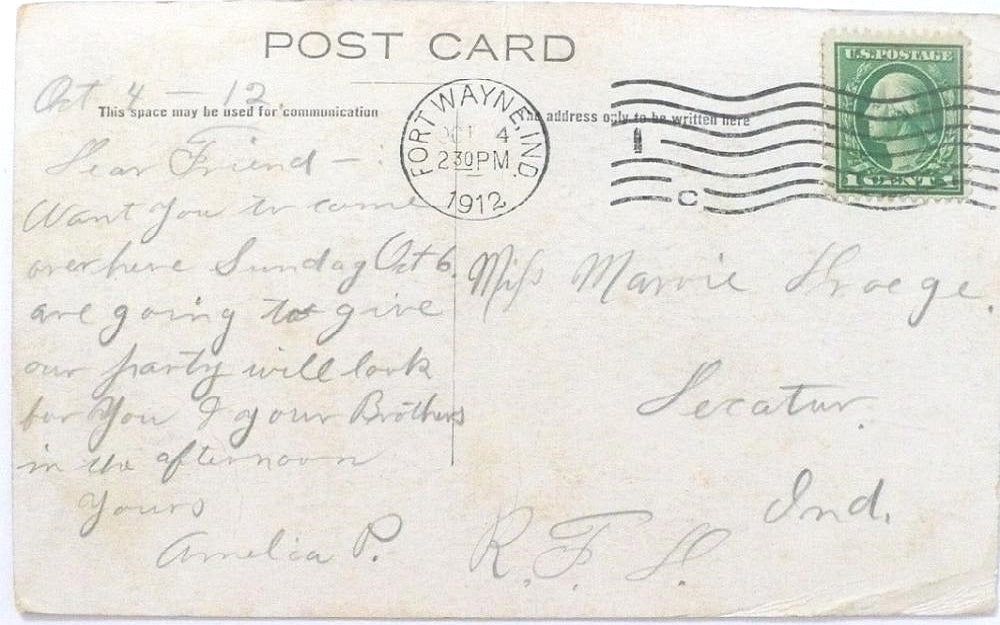 POST CARD
Oct 4 - 12
This space may be used for communication
The address only to be written here
FORT WAYNE, IND.
OCT 4
230PM
1912
1
C
U.S. POSTAGE
1 CENT 1
Dear Friend -
Want You to come
over here Sunday Oct 6.
are going to give
our party will look
for You & your Brothers
in the afternoon
Yours
Amelia P.
Miss Marrie Kroege.
Decatur.
Ind.
R. F. D.